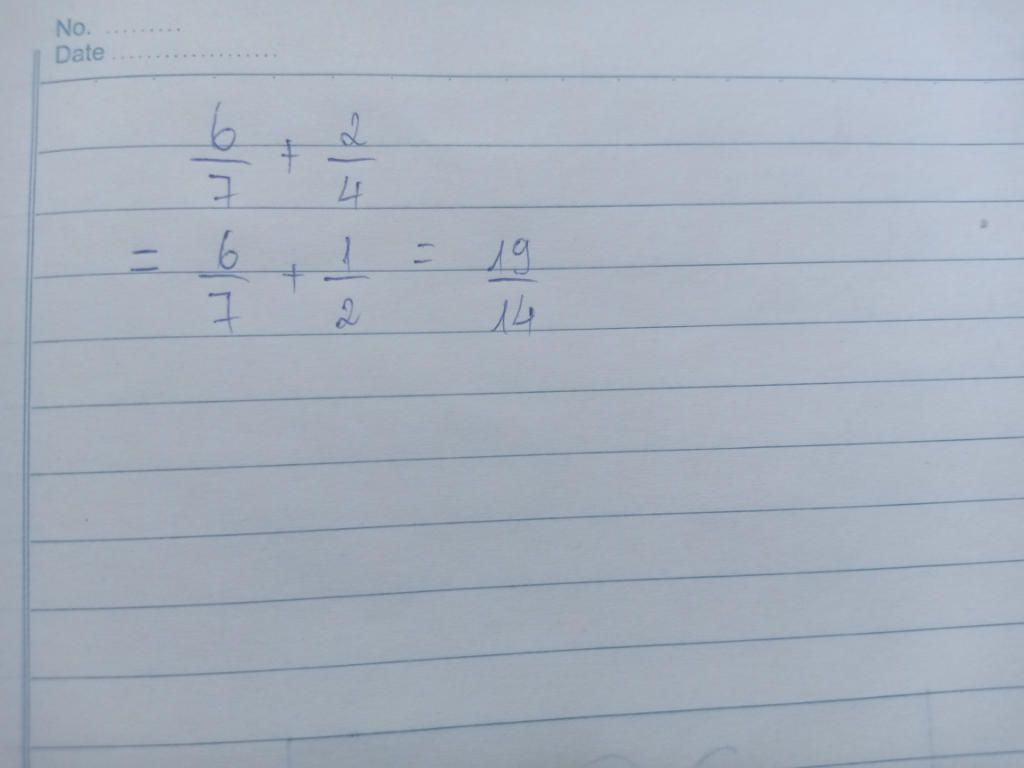 No. .........
Date ...................
6/7 + 2/4
= 6/7 + 1/2 = 19/14